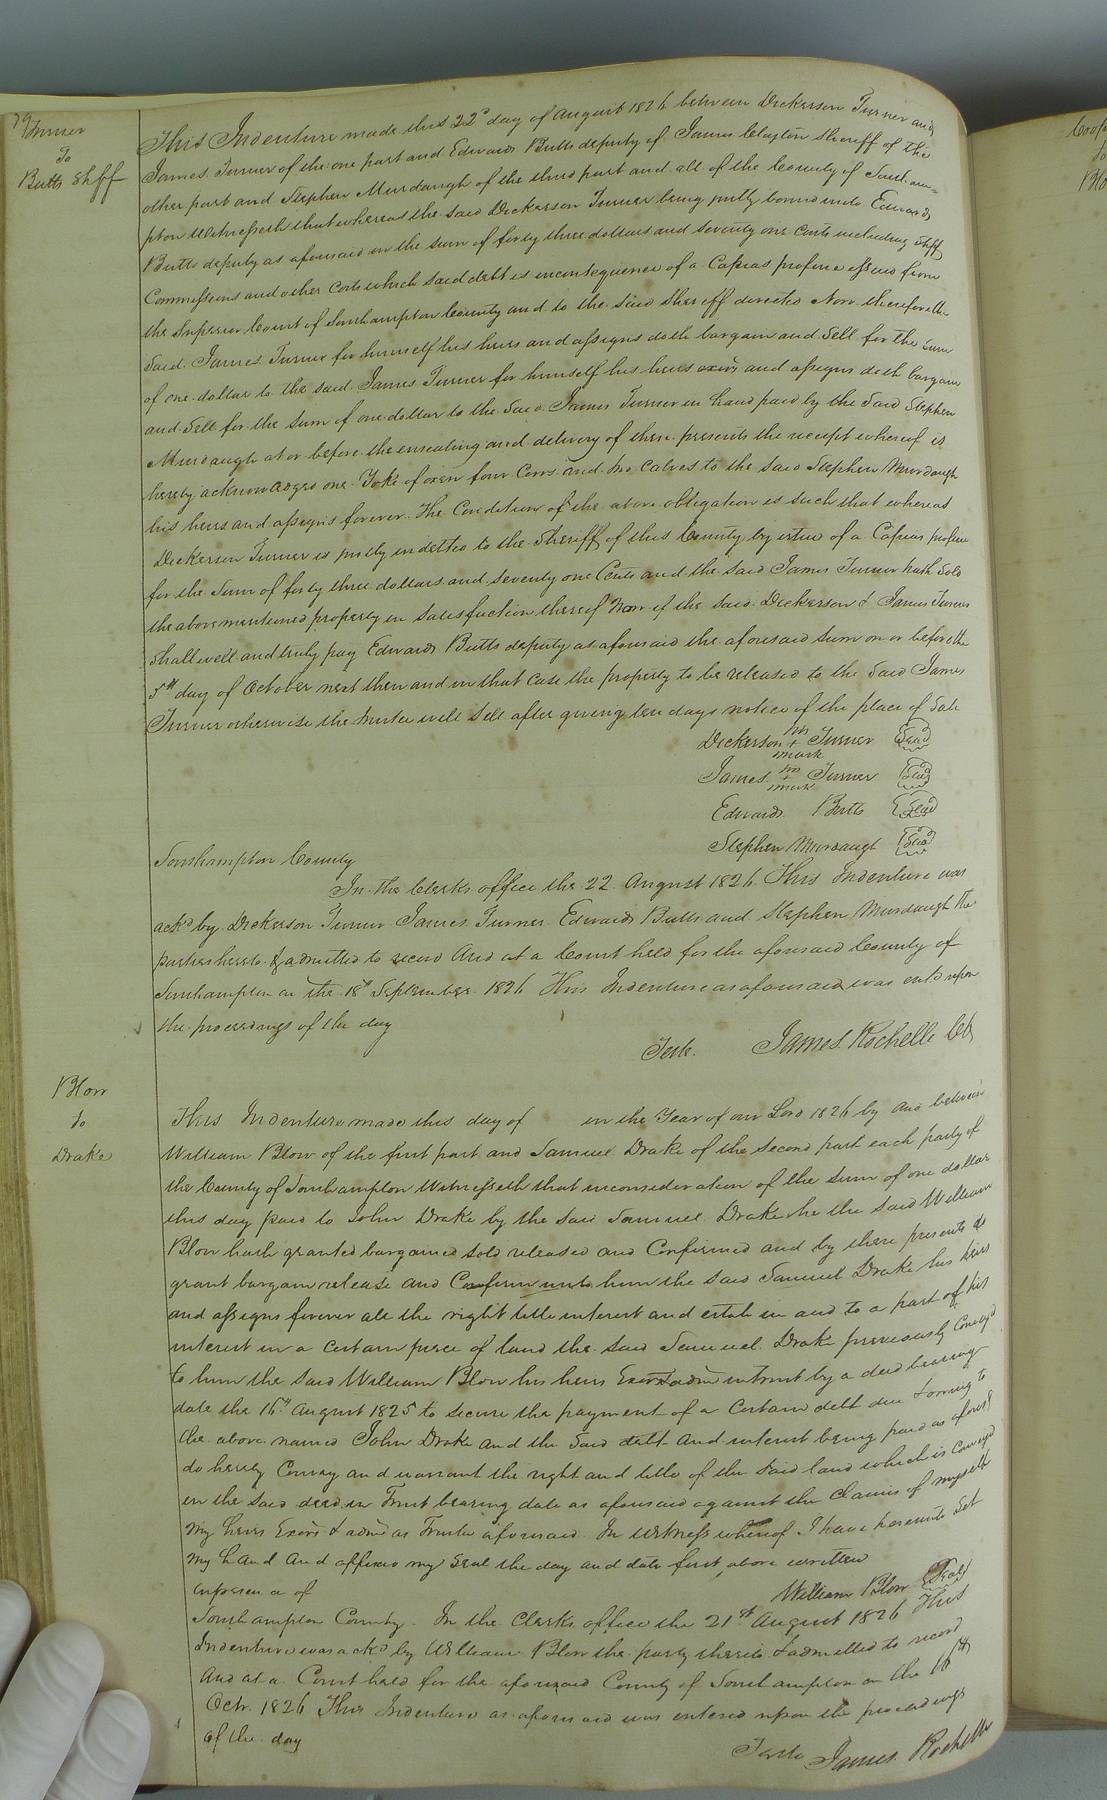 79
Turner
To
Butts Shff
This Indenture made this 22d day of August 1826 between Dickerson Turner and
James Turner of the one part and Edwards Butts deputy of James Clayton Sheriff of the
other part and Stephen Murdaugh of the third part and all of the County of Southam-
pton Witnesseth that whereas the said Dickerson Turner being justly bound unto Edwards
Butts deputy as aforesaid in the sum of forty three dollars and seventy one Cents including Shffs
Commissions and other Costs which said debt is inconsequence of a Capias profine issued from
the Superior Court of Southampton County and to the said Sheriff directed Now therefore the
said James Turner for himself his heirs and assigns doth bargain and Sell for the sum
of one dollar to the said James Turner for himself his heirs exors and assigns doth bargain
and Sell for the sum of one dollar to the said James Turner in hand paid by the said Stephen
Murdaugh at or before the ensealing and delivery of these presents the receipt whereof is
hereby acknowledged one Yoke of oxen four Cows and two Calves to the said Stephen Murdaugh
his heirs and assigns forever. The Condition of the above obligation is such that whereas
Dickerson Turner is justly indetted to the Sheriff of this County by virtue of a Capias profine
for the sum of forty three dollars and seventy one Cents and the said James Turner hath Sold
the above mentioned property in satisfaction thereof Now if the said Dickerson & James Turner
shall well and truly pay Edwards Butts deputy as aforesaid the aforesaid sum on or before the
5th day of October next then and in that case the property to be released to the said James
Turner otherwise the trustee will Sell after giving ten days notice of the place of Sale
Dickerson his + mark Turner Seal
James his + mark Turner Seal
Edwards Butts Seal
Stephen Murdaugh Seal
Southampton County
In the Clerks office the 22 August 1826 This Indenture was
ackd by Dickerson Turner James Turner Edwards Butts and Stephen Murdaugh the
parties hereto & admitted to record And at a Court held for the aforesaid County of
Southampton on the 18th September 1826 This Indenture as aforesaid was entd upon
the proceedings of the day
Teste. James Rochelle Clk
Blow
to
Drake
This Indenture made this day of in the Year of our Lord 1826 by and between
William Blow of the first part and Samuel Drake of the second part each party of
the County of Southampton Witnesseth that inconsideration of the sum of one dollar
this day paid to John Drake by the said Samuel Drake he the said William
Blow hath granted bargained sold released and Confirmed and by these presents do
grant bargain release and Confirm unto him the said Samuel Drake his heirs
and assigns forever all the right title interest and estate in and to a part of his
interest in a certain piece of land the said Samuel Drake previously Conveyd
to him the said William Blow his heirs Exors & adm intrust by a deed bearing
date the 16th August 1825 to secure the payment of a Certain debt due & owing to
the above named John Drake and the said debt and interest being paid as afores'd
do hereby Convey and warrant the right and title of the said land which is Conveyd
in the said deed in Trust bearing date as aforesaid against the Claims of myself
my heirs Exors & adms as Trustee aforesaid. In Witness whereof I have hereunto Set
my hand and affixed my Seal the day and date first above written
in presence of William Blow Seal
Southampton County. In the Clerks office the 21st August 1826 This
Indenture was ackd by William Blow the party thereto & admitted to record
And at a Court held for the aforesaid County of Southampton on the 16th
Octr. 1826 This Indenture as aforesaid was entered upon the proceedings
of the day
Teste James Rochelle